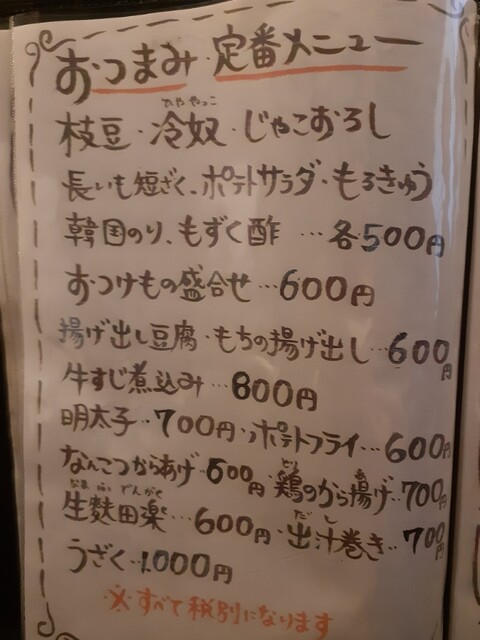 おつまみ・定番メニュー
ひややっこ
枝豆・冷奴・じゃこおろし
長いも短ざく、ポテトサラダ・もろきゅう
韓国のり、もずく酢…各500円
おつけもの盛合せ…600円
揚げ出し豆腐・もちの揚げ出し…600円
牛すじ煮込み…800円
明太子…700円・ポテトフライ…600円
とり あ
なんこつからあげ・600円・鶏のから揚げ…700円
なまふでんがく だし
生麩田楽…600円・出汁巻き…700円
うざく・1.000円
※すべて税別になります